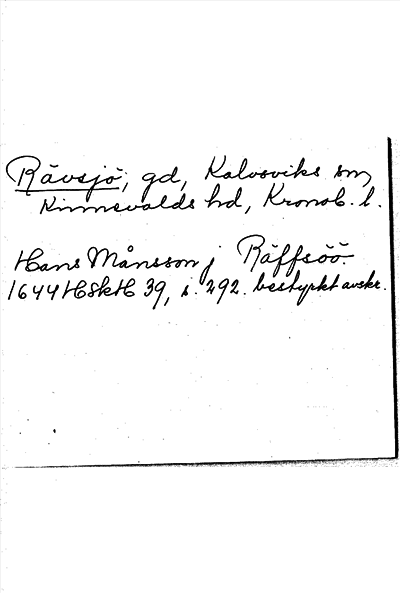 Rävsjö, gd, Kalvsviks sn,
Kinnevalds hd, Kronob. l.
Hans Månsson j Räffsöö.
1644 HSkH 39, s. 292. bestyrkt avskr.